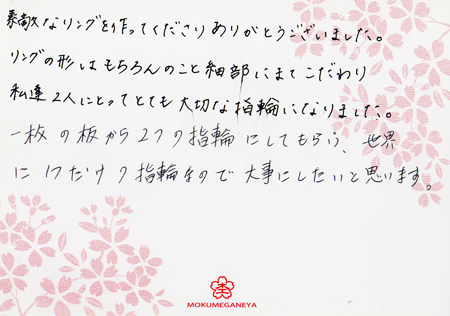 素敵なリングを作ってくださりありがとうございました。
リングの形はもちろんのこと細部にまでこだわり
私達2人にとってとても大切な指輪になりました。
一枚の板から2つの指輪にしてもらう、世界
に1つだけの指輪なので大事にしたいと思います。
MOKUMEGANEYA